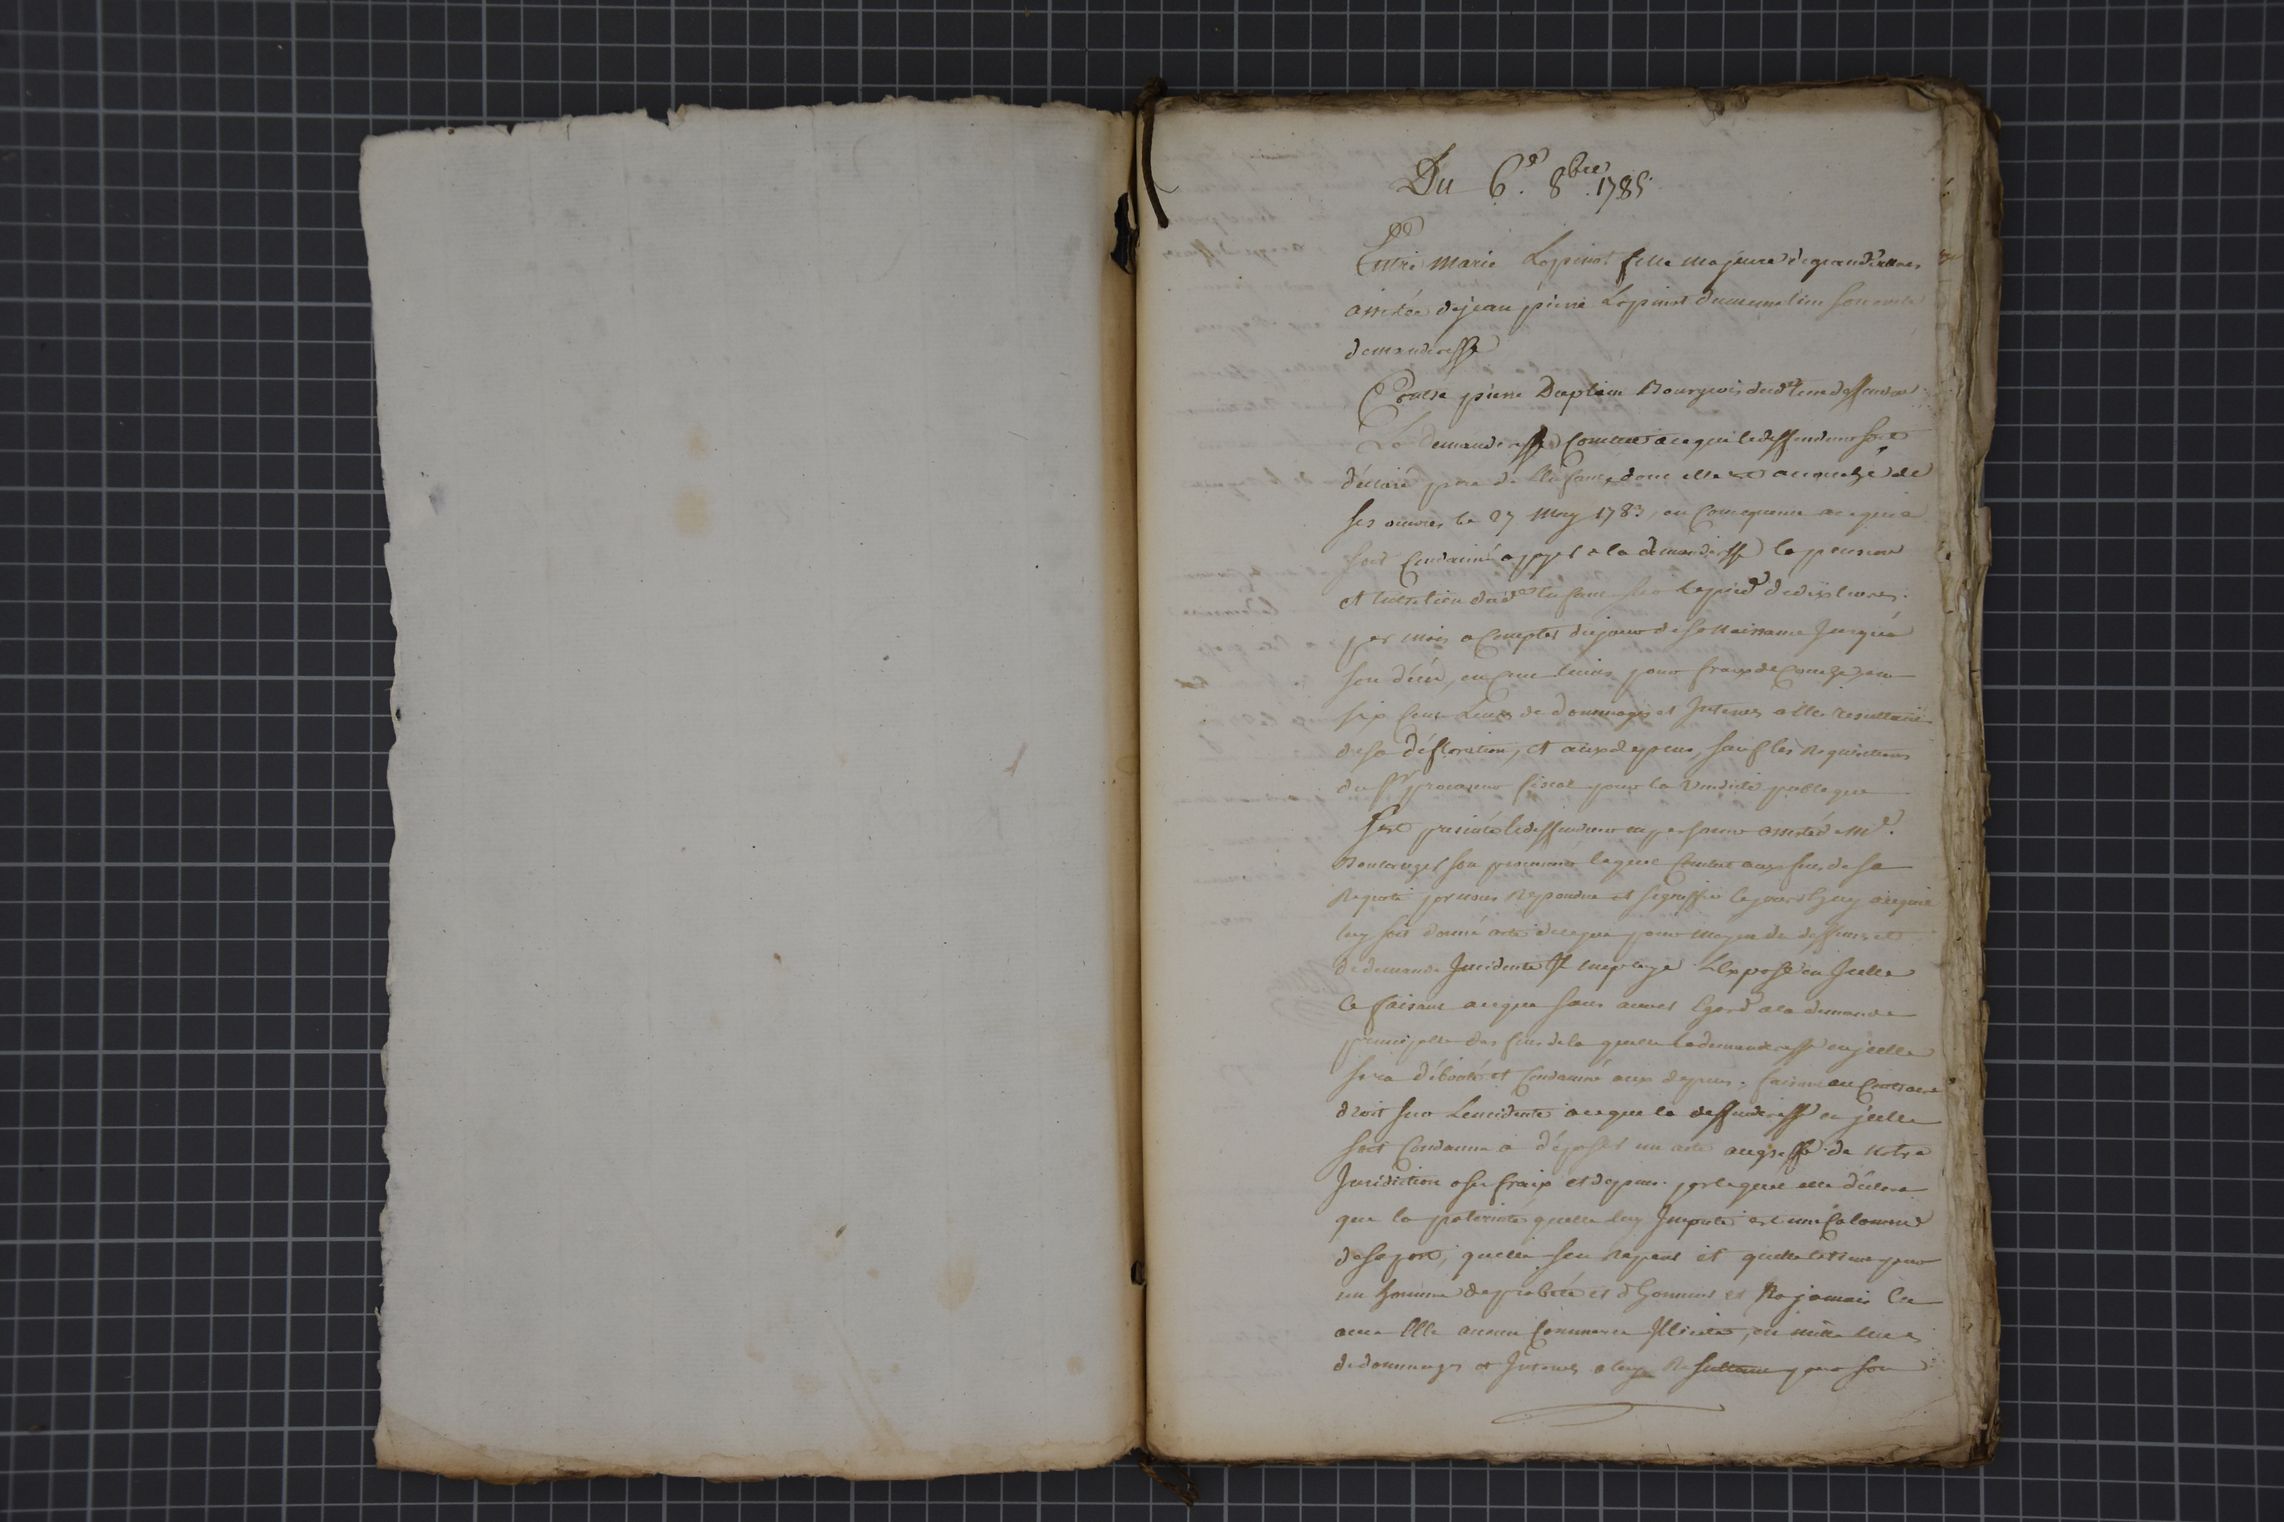 Du 6.e 8bre 1785
Entre marie Lopinot fille majeure de grand
assistée de jean pierre Lopinot du meme lieu son oncle
demanderesse
Contre pierre Duplain Bourgeois dud. lieu deffendeur
La demanderesse Conclut a ce que le deffendeur soit
déclaré pere de l'Enfant dont elle est accouchée de
ses œuvres le 27 May 1783, en Consequence a ce qu'il
soit Condamné a payer a la demanderesse la pension
et entretien dud. Enfant sur le pied de dix livres
par mois a Compter du jour de sa naissance jusqu'a
son décés, en Cent livres pour fraix de Couche, en
six Cent Livres de dommages et Interets a elle resultans
de sa défloration, et aux depens, sauf les Requisitions
du Sr procureur fiscal pour la Vindicte publique
S'est presenté le deffendeur en personne assisté de Me.
Boulanger son procureur lequel Conclut aux fins de sa
Requete par nous Repondue et signiffiée le jourd'huy a ce qu'il
luy soit donné acte de ce que pour moyen de deffenses et
de demande Incidente Il employe L'Exposé en Icelle
Ce faisant a ce que sans avoir Egard a la demande
principalle des fins de la quelle la demanderesse en jcelle
sera déboutée et Condamnée aux depens, faisant au Contraire
droit sur L'incidente a ce que la deffenderesse en jcelle
soit Condamnée a déposer un acte au greffe de notre
Jurisdiction a ses fraix et depens par lequel elle déclare
que la paternité qu'elle luy Impute est une Calomnie
de sa part, qu'elle s'en Repent et qu'elle le tient pour
un homme de probité et d'honneur et N'a jamais Eu
avec Elle aucun Commerce Illicite, en mille livres
de dommages et Interets a luy Resultans pour son